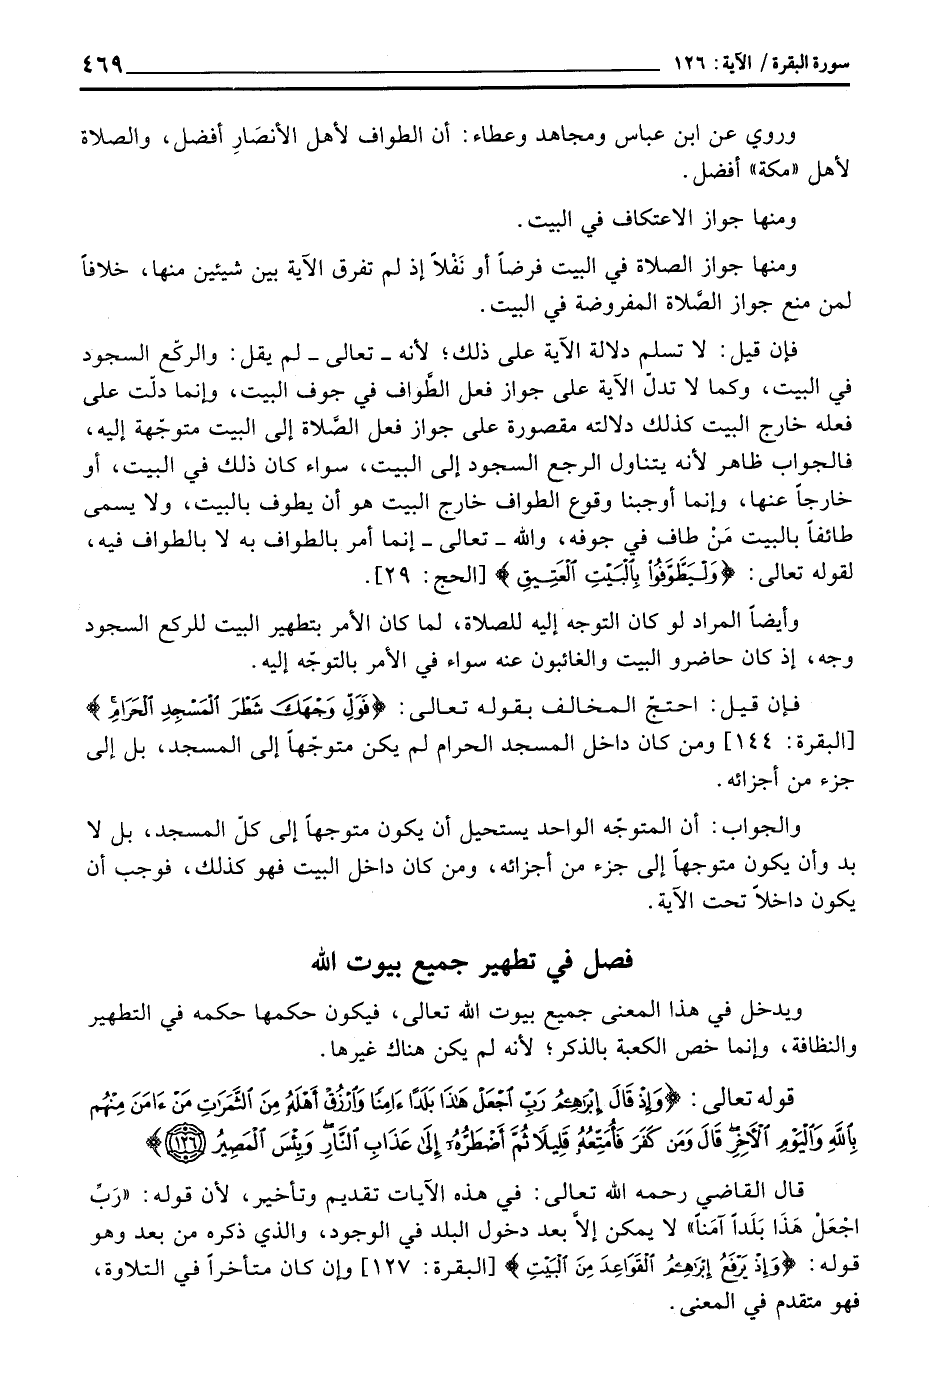 سورة البقرة / الآية: ١٢٦ ٤٦٩
وروي عن ابن عباس ومجاهد وعطاء: أن الطواف لأهل الأنصَارِ أفضل، والصلاة
لأهل «مكة» أفضل.
ومنها جواز الاعتكاف في البيت.
ومنها جواز الصلاة في البيت فرضاً أو نَفْلاً إذ لم تفرق الآية بين شيئين منها، خلافاً
لمن منع جواز الصَّلاة المفروضة في البيت.
فإن قيل: لا تسلم دلالة الآية على ذلك؛ لأنه ـ تعالى ـ لم يقل: والركّع السجود
في البيت، وكما لا تدلّ الآية على جواز فعل الطَّواف في جوف البيت، وإنما دلّت على
فعله خارج البيت كذلك دلالته مقصورة على جواز فعل الصَّلاة إلى البيت متوجّهة إليه،
فالجواب ظاهر لأنه يتناول الرجع السجود إلى البيت، سواء كان ذلك في البيت، أو
خارجاً عنها، وإنما أوجبنا وقوع الطواف خارج البيت هو أن يطوف بالبيت، ولا يسمى
طائفاً بالبيت مَنْ طاف في جوفه، والله ـ تعالى ـ إنما أمر بالطواف به لا بالطواف فيه،
لقوله تعالى: ﴿وَلْيَطَّوَّفُوا بِالْبَيْتِ الْعَتِيقِ﴾ [الحج: ٢٩].
وأيضاً المراد لو كان التوجه إليه للصلاة، لما كان الأمر بتطهير البيت للركع السجود
وجه، إذ كان حاضرو البيت والغائبون عنه سواء في الأمر بالتوجّه إليه.
فإن قيل: احتجّ المخالف بقوله تعالى: ﴿فَوَلِّ وَجْهَكَ شَطْرَ الْمَسْجِدِ الْحَرَامِ﴾
[البقرة: ١٤٤] ومن كان داخل المسجد الحرام لم يكن متوجّهاً إلى المسجد، بل إلى
جزء من أجزائه.
والجواب: أن المتوجّه الواحد يستحيل أن يكون متوجهاً إلى كلّ المسجد، بل لا
بد وأن يكون متوجهاً إلى جزء من أجزائه، ومن كان داخل البيت فهو كذلك، فوجب أن
يكون داخلاً تحت الآية.
فصل في تطهير جميع بيوت الله
ويدخل في هذا المعنى جميع بيوت الله تعالى، فيكون حكمها حكمه في التطهير
والنظافة، وإنما خص الكعبة بالذكر؛ لأنه لم يكن هناك غيرها.
قوله تعالى: ﴿وَإِذْ قَالَ إِبْرَاهِيمُ رَبِّ اجْعَلْ هَٰذَا بَلَدًا آمِنًا وَارْزُقْ أَهْلَهُ مِنَ الثَّمَرَاتِ مَنْ آمَنَ مِنْهُم
بِاللَّهِ وَالْيَوْمِ الْآخِرِ ۖ قَالَ وَمَن كَفَرَ فَأُمَتِّعُهُ قَلِيلًا ثُمَّ أَضْطَرُّهُ إِلَىٰ عَذَابِ النَّارِ ۖ وَبِئْسَ الْمَصِيرُ ١٢٦﴾
قال القاضي رحمه الله تعالى: في هذه الآيات تقديم وتأخير، لأن قوله: «رَبِّ
اجْعَلْ هَذَا بَلَداً آمَناً» لا يمكن إلاَّ بعد دخول البلد في الوجود، والذي ذكره من بعد وهو
قوله: ﴿وَإِذْ يَرْفَعُ إِبْرَاهِيمُ الْقَوَاعِدَ مِنَ الْبَيْتِ﴾ [البقرة: ١٢٧] وإن كان متأخراً في التلاوة،
فهو متقدم في المعنى.